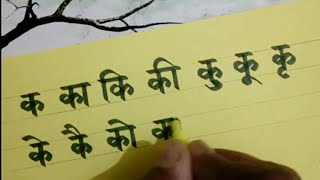 क का कि की कु कू कृ
के कै को क